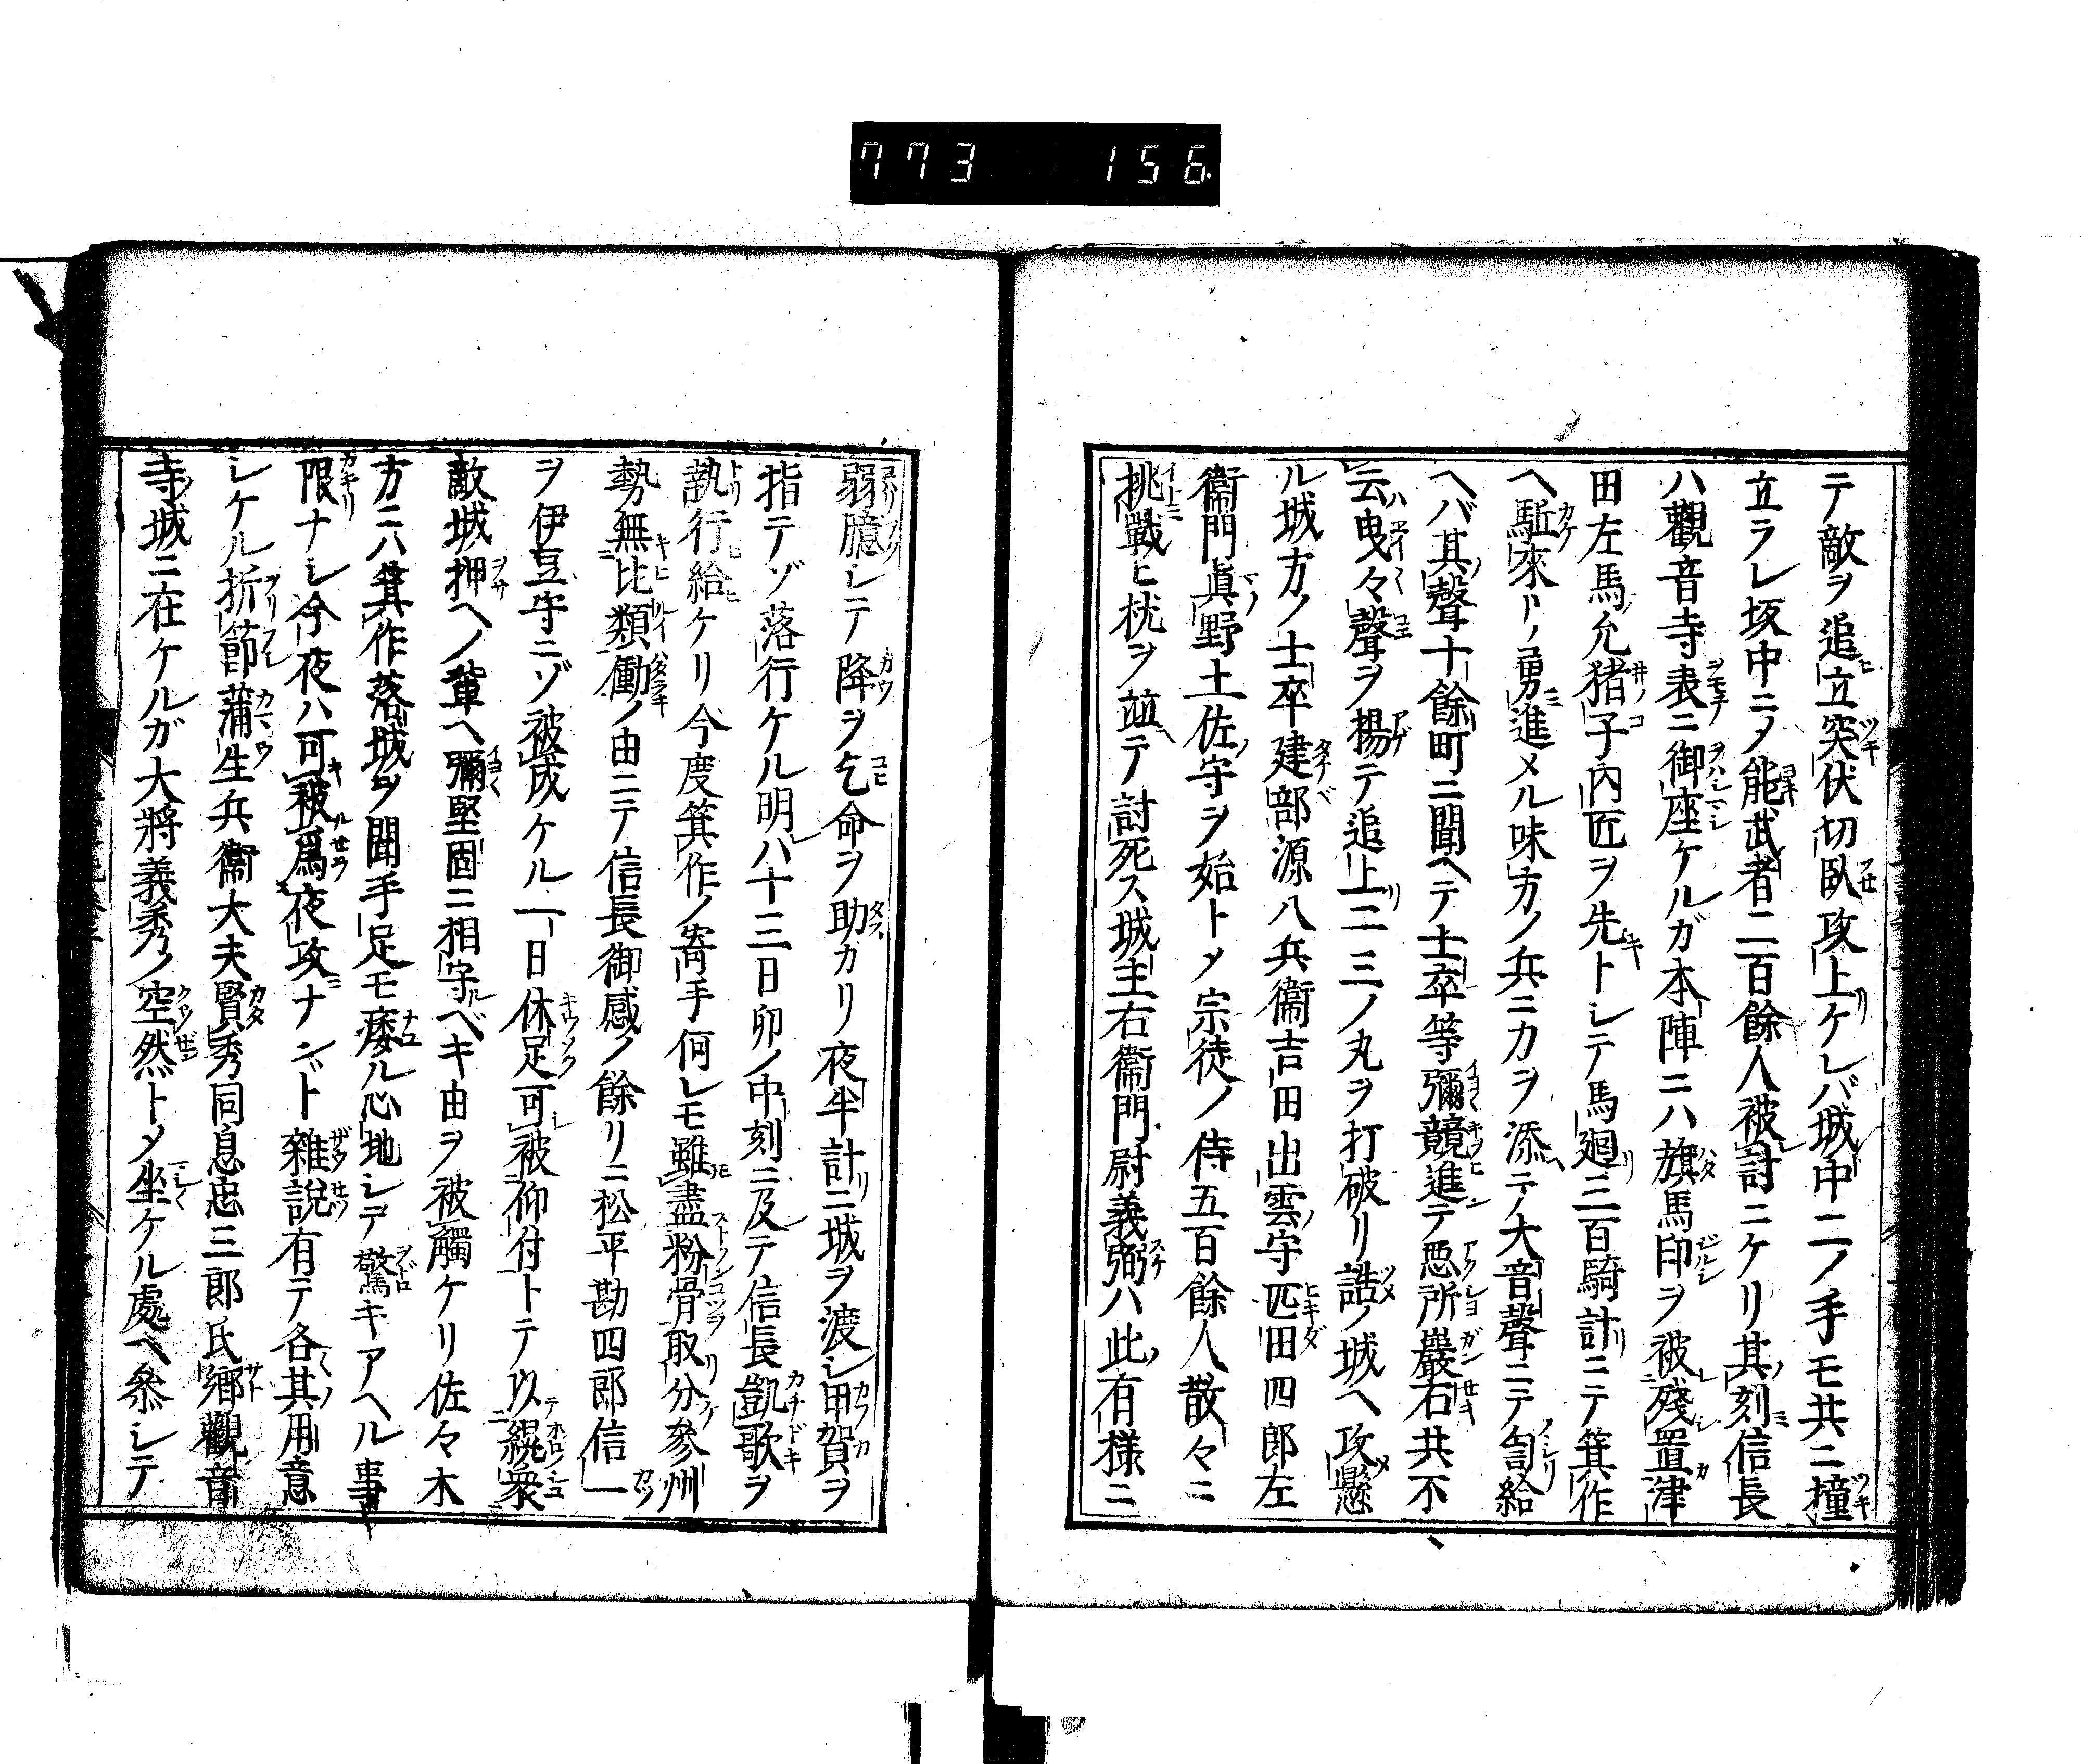 773 156
テ敵ヲ追立突伏切臥攻上ケレバ城中二ノ手モ共ニ撞
立ラレ坂中ニメ能武者二百餘人被討ニケリ其刻信長
ハ觀音寺表ニ御座ケルガ本陣ニハ旗馬印ヲ被殘置津
田左馬允猪子内匠ヲ先トシテ馬廻三百騎計ニテ箕作
ヘ駈來リ勇進メル味方ノ兵ニカヲ添テ大音聲ニテ訇給
ヘバ其聲十餘町ニ聞ヘテ士卒等彌競進テ惡所巖石共不
云曳々聲ヲ揚テ追上二三ノ丸ヲ打破リ詰ノ城ヘ攻懸
ル城方ノ士卒建部源八兵衞吉田出雲守匹田四郎左
衞門眞野土佐守ヲ始トメ宗徒ノ侍五百餘人散々ニ
挑戰ヒ枕ヲ並テ討死ス城主右衞門尉義弼ハ此有樣ニ
弱臆シテ降ヲ乞命ヲ助カリ夜半計ニ城ヲ渡シ甲賀ヲ
指テゾ落行ケル明ハ十三日卯ノ中刻ニ及テ信長凱歌ヲ
執行給ケリ今度箕作ノ寄手何レモ雖盡粉骨取分參州
勢無比類働ノ由ニテ信長御感ノ餘リニ松平勘四郎信一
ヲ伊豆守ニゾ被成ケル一日休足可被仰付トテ以緄衆
敵城押ヘノ輩ヘ彌堅固ニ相守ベキ由ヲ被觸ケリ佐々木
方ニハ箕作落城ヲ聞手足モ痿ル心地シテ驚キアヘル事
限ナシ今夜ハ可被爲夜攻ナンド雜說有テ各其用意
シケル折節蒲生兵衞大夫賢秀同息忠三郎氏鄉觀音
寺城ニ在ケルガ大將義秀ノ空然トメ坐ケル處ヘ參シテ